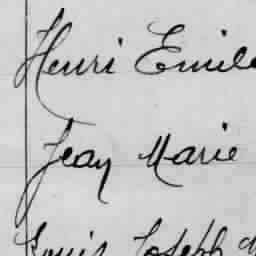 Henri Emile
Jean Marie
Louis Joseph